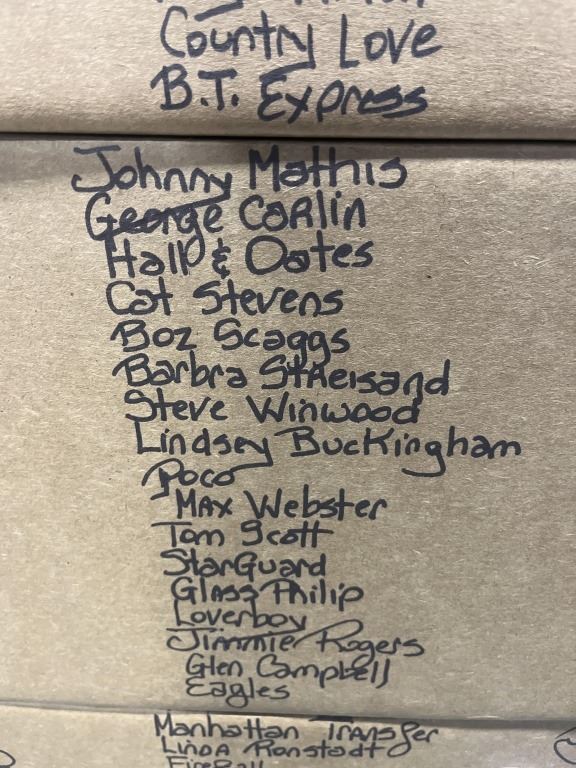 Country Love
B.T. Express
Johnny Mathis
George Carlin
Hall & Oates
Cat Stevens
Boz Scaggs
Barbra Streisand
Steve Winwood
Lindsey Buckingham
Poco
Max Webster
Tom Scott
StarGuard
Glass Philip
Loverboy
Jimmie Rogers
Glen Campbell
Eagles
Manhattan Transfer
Linda Ronstadt